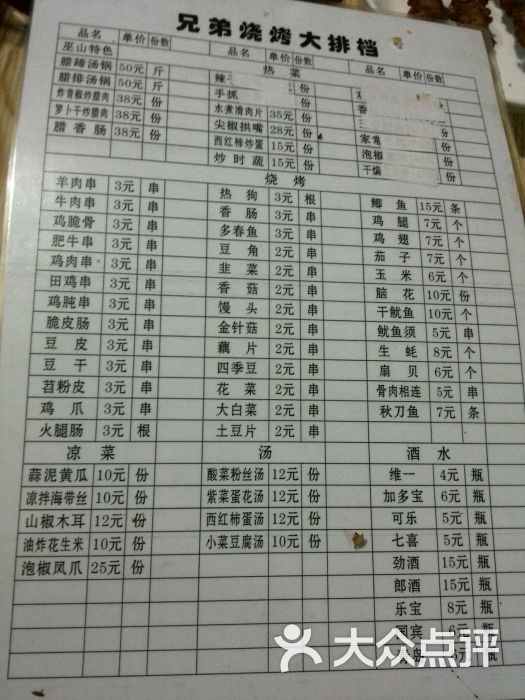 兄弟烧烤大排档
品名 单价 份数 品名 单价 份数 品名 单价 份数
巫山特色 热菜
腊蹄汤锅 50元 斤 辣三 份
腊排汤锅 50元 斤 手抓 份 香 份
炸青椒炒腊肉 38元 份 水煮滑肉片 35元 份 份
萝卜干炒腊肉 38元 份 尖椒拱嘴 28元 份 家常 份
腊香肠 38元 份 西红柿炒蛋 15元 份 泡椒 份
炒时蔬 15元 份 干煸 份
烧烤
羊肉串 3元 串 热狗 3元 根 鲫鱼 15元 条
牛肉串 3元 串 香肠 3元 串 鸡腿 7元 个
鸡脆骨 3元 串 多春鱼 3元 串 鸡翅 7元 个
肥牛串 3元 串 豆角 2元 串 茄子 7元 个
鸡肉串 3元 串 韭菜 2元 串 玉米 6元 个
田鸡串 3元 串 香菇 2元 串 脑花 10元 份
鸡肫串 3元 串 馒头 2元 串 干鱿鱼 10元 个
脆皮肠 3元 串 金针菇 2元 串 鱿鱼须 5元 串
豆皮 3元 串 藕片 2元 串 生蚝 8元 个
豆干 3元 串 四季豆 2元 串 扇贝 6元 个
苕粉皮 3元 串 花菜 2元 串 骨肉相连 5元 串
鸡爪 3元 串 大白菜 2元 串 秋刀鱼 7元 条
火腿肠 3元 根 土豆片 2元 串
凉菜 汤 酒水
蒜泥黄瓜 10元 份 酸菜粉丝汤 12元 份 维一 4元 瓶
凉拌海带丝 10元 份 紫菜蛋花汤 12元 份 加多宝 6元 瓶
山椒木耳 12元 份 西红柿蛋汤 12元 份 可乐 5元 瓶
油炸花生米 10元 份 小菜豆腐汤 10元 份 七喜 5元 瓶
泡椒凤爪 25元 份 劲酒 15元 瓶
郎酒 15元 瓶
乐宝 8元 瓶
国宾 6元 瓶
大众点评